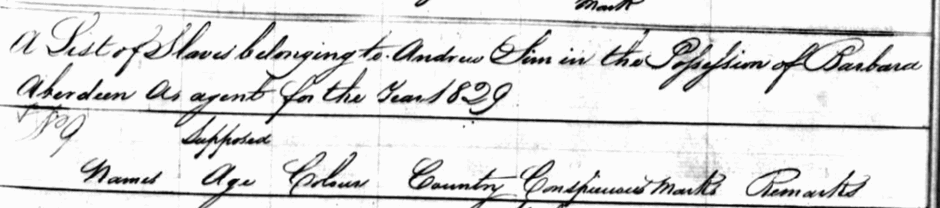 mark
A List of Slaves belonging to Andrew Sim in the Possession of Barbara
Aberdeen As agent for the Year 1829
No 9
Supposed
Names Age Colour Country Conspicuous Marks Remarks